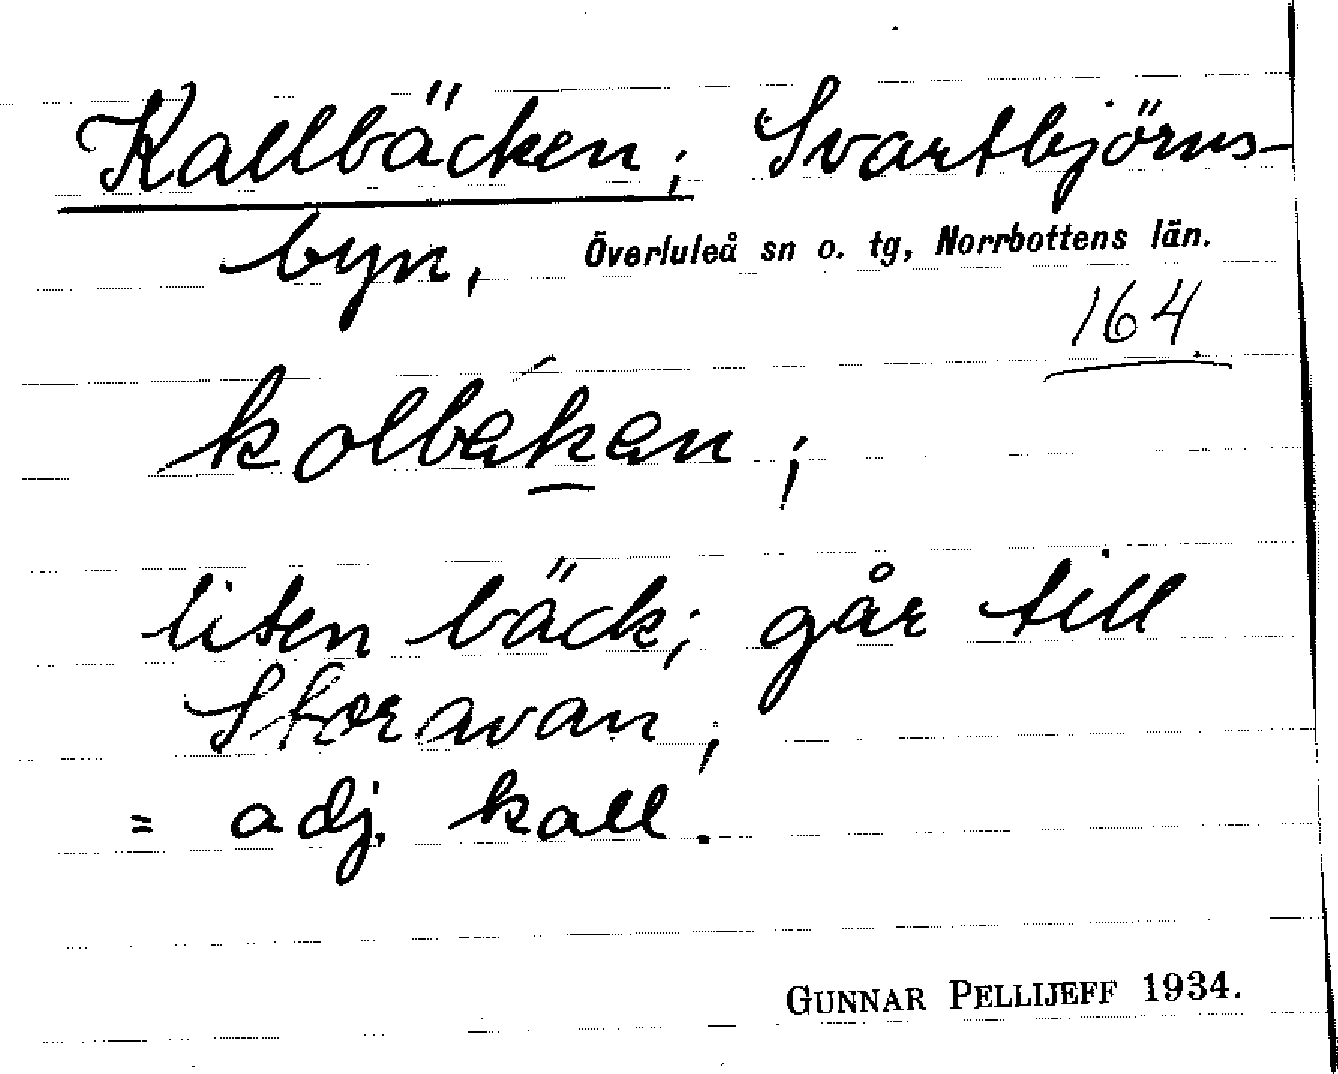 Kallbäcken; Svartbjörns-
byn, Överluleå sn o. tg, Norrbottens län.
164
kolbék̲en;
liten bäck; går till
Storavan;
= adj. kall.
GUNNAR PELLIJEFF 1934.